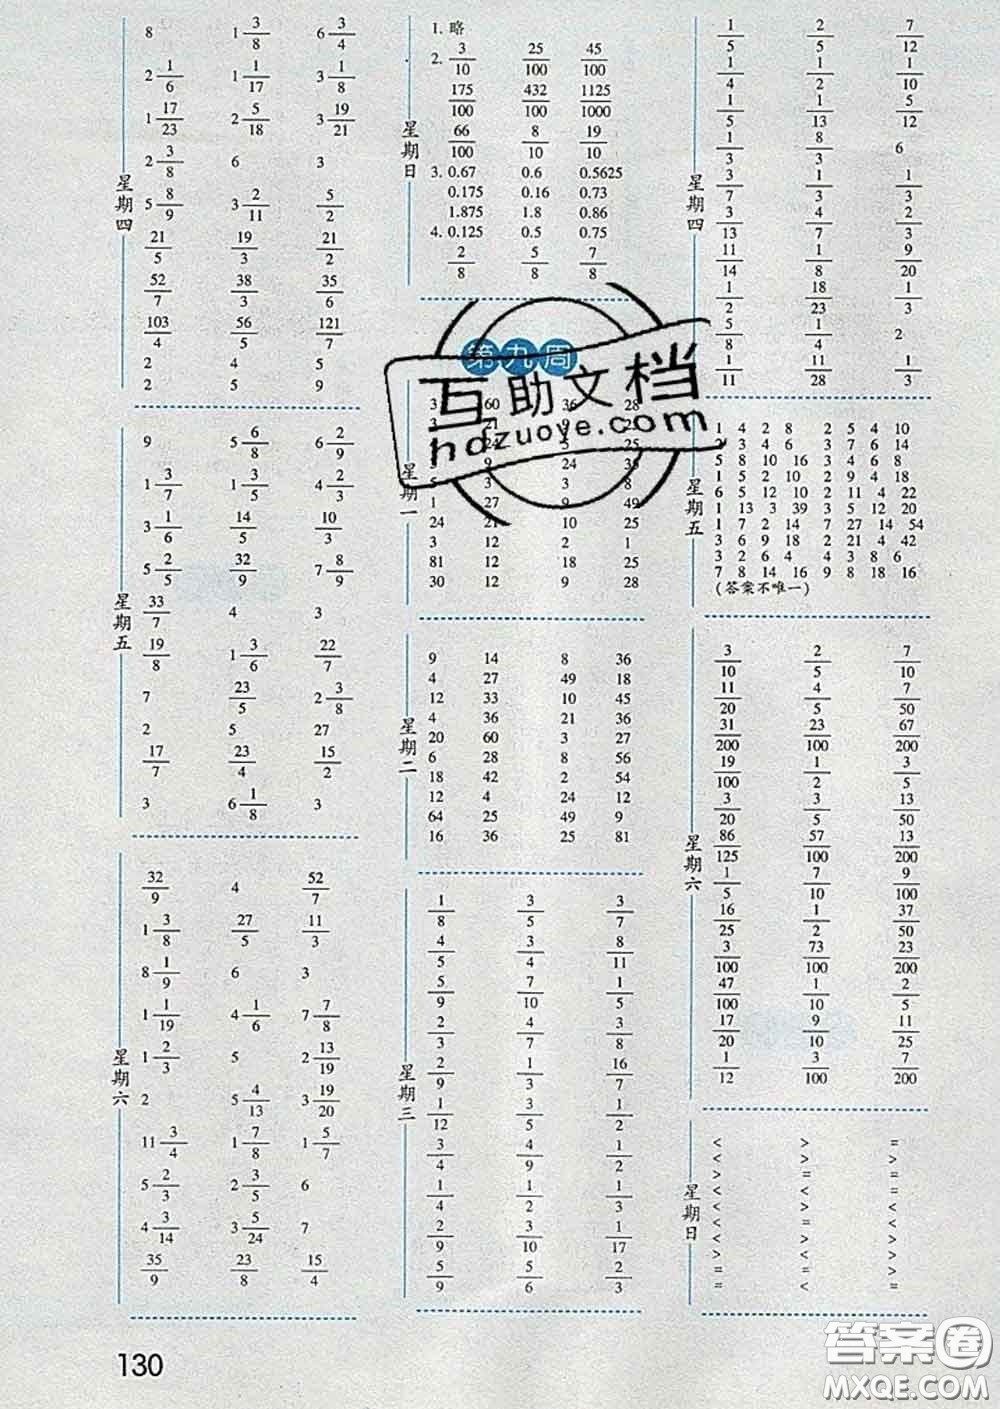 星期四
8 1 3/8 6 3/4
2 1/6 1 1/17 3 1/8
1 17/23 2 5/18 3 19/21
2 3/8 6 3
5 8/9 3 2/11 5/2
21/5 19/3 21/2
52/7 38/3 35/6
103/4 56/5 121/7
2 4 2
2 5 9
星期五
9 5 6/8 6 2/9
1 3/7 1 3/5 4 2/3
3 1/6 14/5 10/3
5 2/5 32/9 7 8/9
33/7 4 3
19/8 1 3/6 22/7
7 23/5 2 3/8
2 5 27
17/7 23/4 15/2
3 6 1/8 3
星期六
32/9 4 52/7
1 3/8 27/5 11/3
8 1/9 6 3
1 1/19 4 1/6 7 7/8
1 2/3 5 2 13/19
2 5 4/13 3 19/20
11 3/4 1 7/8 1 5/7
5 2/3 2 3/5 6
4 3/14 3 5/24 7
35/9 23/8 15/4
130
星期日
1. 略
2. 3/10 25/100 45/100
175/100 432/100 1125/1000
66/100 8/10 19/10
3. 0.67 0.6 0.5625
0.175 0.16 0.73
1.875 1.8 0.86
4. 0.125 0.5 0.75
2/8 5/8 7/8
第九周
互助文档
hdzuoye.com
星期一
3 60 36 28
1 27 9 49
24 21 10 25
3 12 2 1
81 12 18 28
30 12 9 28
星期二
9 14 8 36
4 27 49 18
12 33 10 45
4 36 21 36
20 60 3 27
6 28 8 56
18 42 2 54
12 4 24 12
64 25 49 9
16 36 25 81
星期三
1/8 3/5 3/7
4/5 3/4 8/11
5/9 7/10 1/5
2/3 4/7 3/8
2/9 1/3 16/7
1/12 3/5 1/2
3/4 4/9 1/2
1/4 1/2 3/2
2/9 3/10 1/17
5/9 5/6 2/3
星期四
1/5 2/5 7/12
1/4 1/2 1/10
1/5 1/13 5/12
1/3 8/3 6
3/7 1/3 1/3
3/13 4/7 2/3
11/14 1/8 9/20
1/2 18/23 1/3
5/8 1/4 2
1/11 11/28 1/3
星期五
1 4 2 8 2 5 4 10
2 3 4 6 3 7 6 14
5 8 10 16 3 4 6 8
1 5 2 10 2 9 4 18
6 5 12 10 2 11 4 22
1 13 3 39 3 5 12 20
1 7 2 14 7 27 14 54
3 7 9 21 2 21 4 42
3 2 6 4 4 3 8 6
7 8 14 16 9 8 18 16
(答案不唯一)
星期六
3/10 2/5 7/10
11/20 4/5 7/50
31/200 23/100 67/200
19/100 1/2 3/5
3/20 3/5 13/50
86/125 57/100 13/200
1/5 7/10 9/100
16/25 1/2 37/50
3/100 73/100 23/200
47/100 1/10 2/5
17/20 9/10 11/25
1/12 3/100 7/200
星期日
< > =
< > >
> = =
< < <
> > >
< = <
< > >
> < >
= = >
= < =
答案圈
MXQE.COM